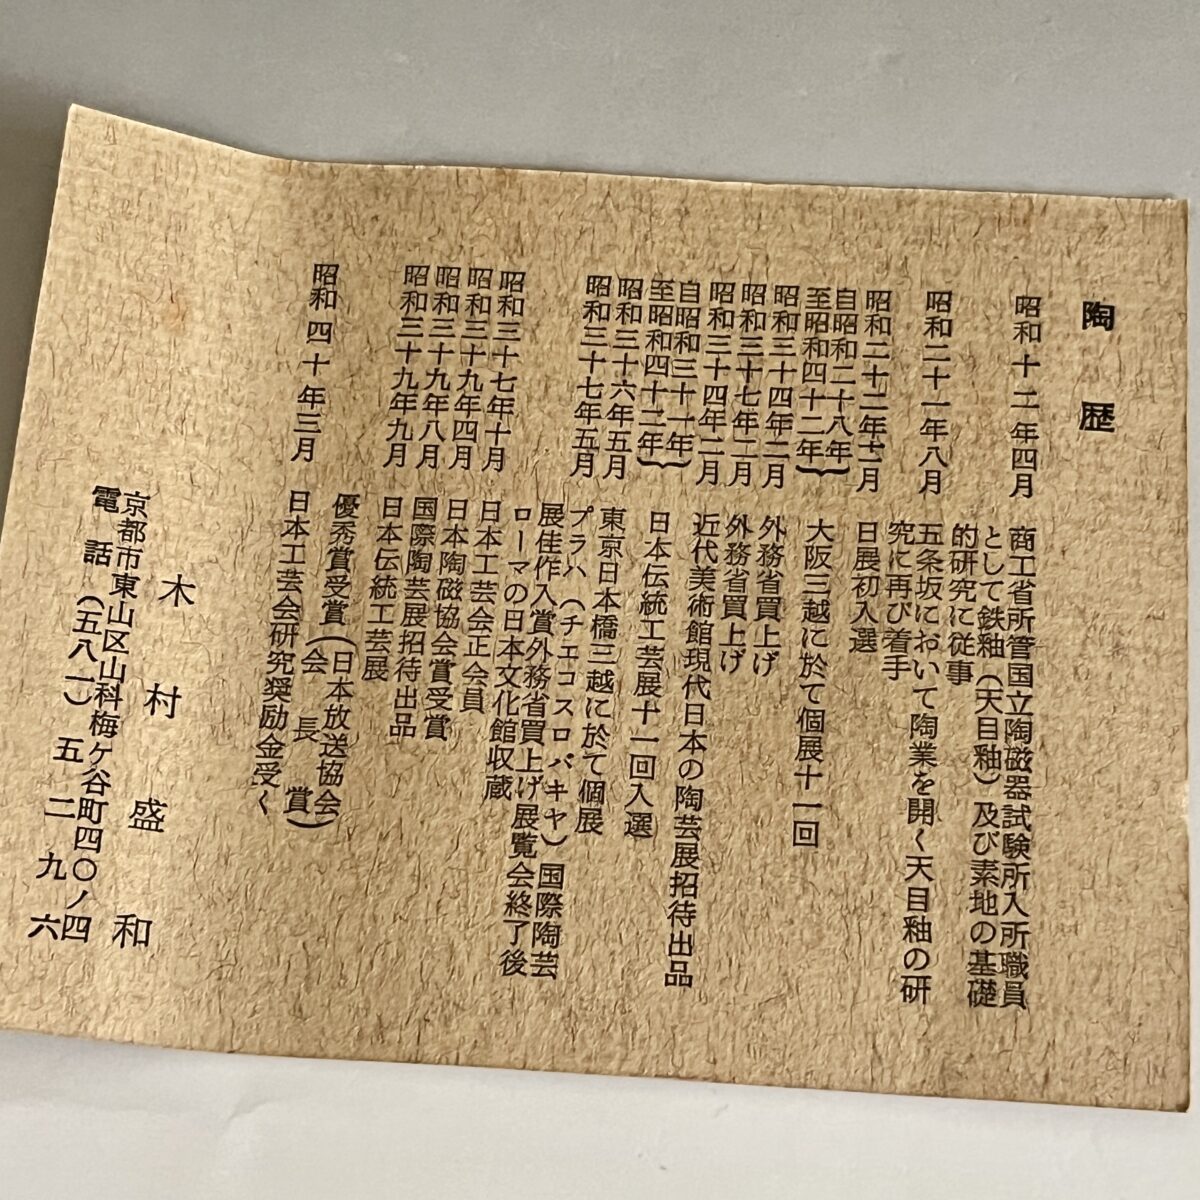 陶歴
昭和十二年四月 商工省所管国立陶磁器試験所入所職員
として鉄釉（天目釉）及び素地の基礎
的研究に従事
昭和二十一年八月 五条坂において陶業を開く天目釉の研
究に再び着手
昭和二十二年十一月 日展初入選
自昭和二十八年
至昭和四十二年 大阪三越に於て個展十一回
昭和三十四年二月 外務省買上げ
昭和三十七年二月 外務省買上げ
昭和三十四年二月 近代美術館現代日本の陶芸展招待出品
自昭和三十一年
至昭和四十二年 日本伝統工芸展十一回入選
昭和三十六年五月 東京日本橋三越に於て個展
昭和三十七年五月 プラハ（チエコスロバキヤ）国際陶芸
展佳作入賞外務省買上げ展覧会終了後
ローマの日本文化館収蔵
昭和三十七年十月 日本工芸会正会員
昭和三十九年四月 日本陶磁協会賞受賞
昭和三十九年八月 国際陶芸展招待出品
昭和三十九年九月 日本伝統工芸展
優秀賞受賞（日本放送協会会長賞）
昭和四十年三月 日本工芸会研究奨励金受く
木村盛和
京都市東山区山科梅ケ谷町四〇ノ四
電話（五八一）五二九六